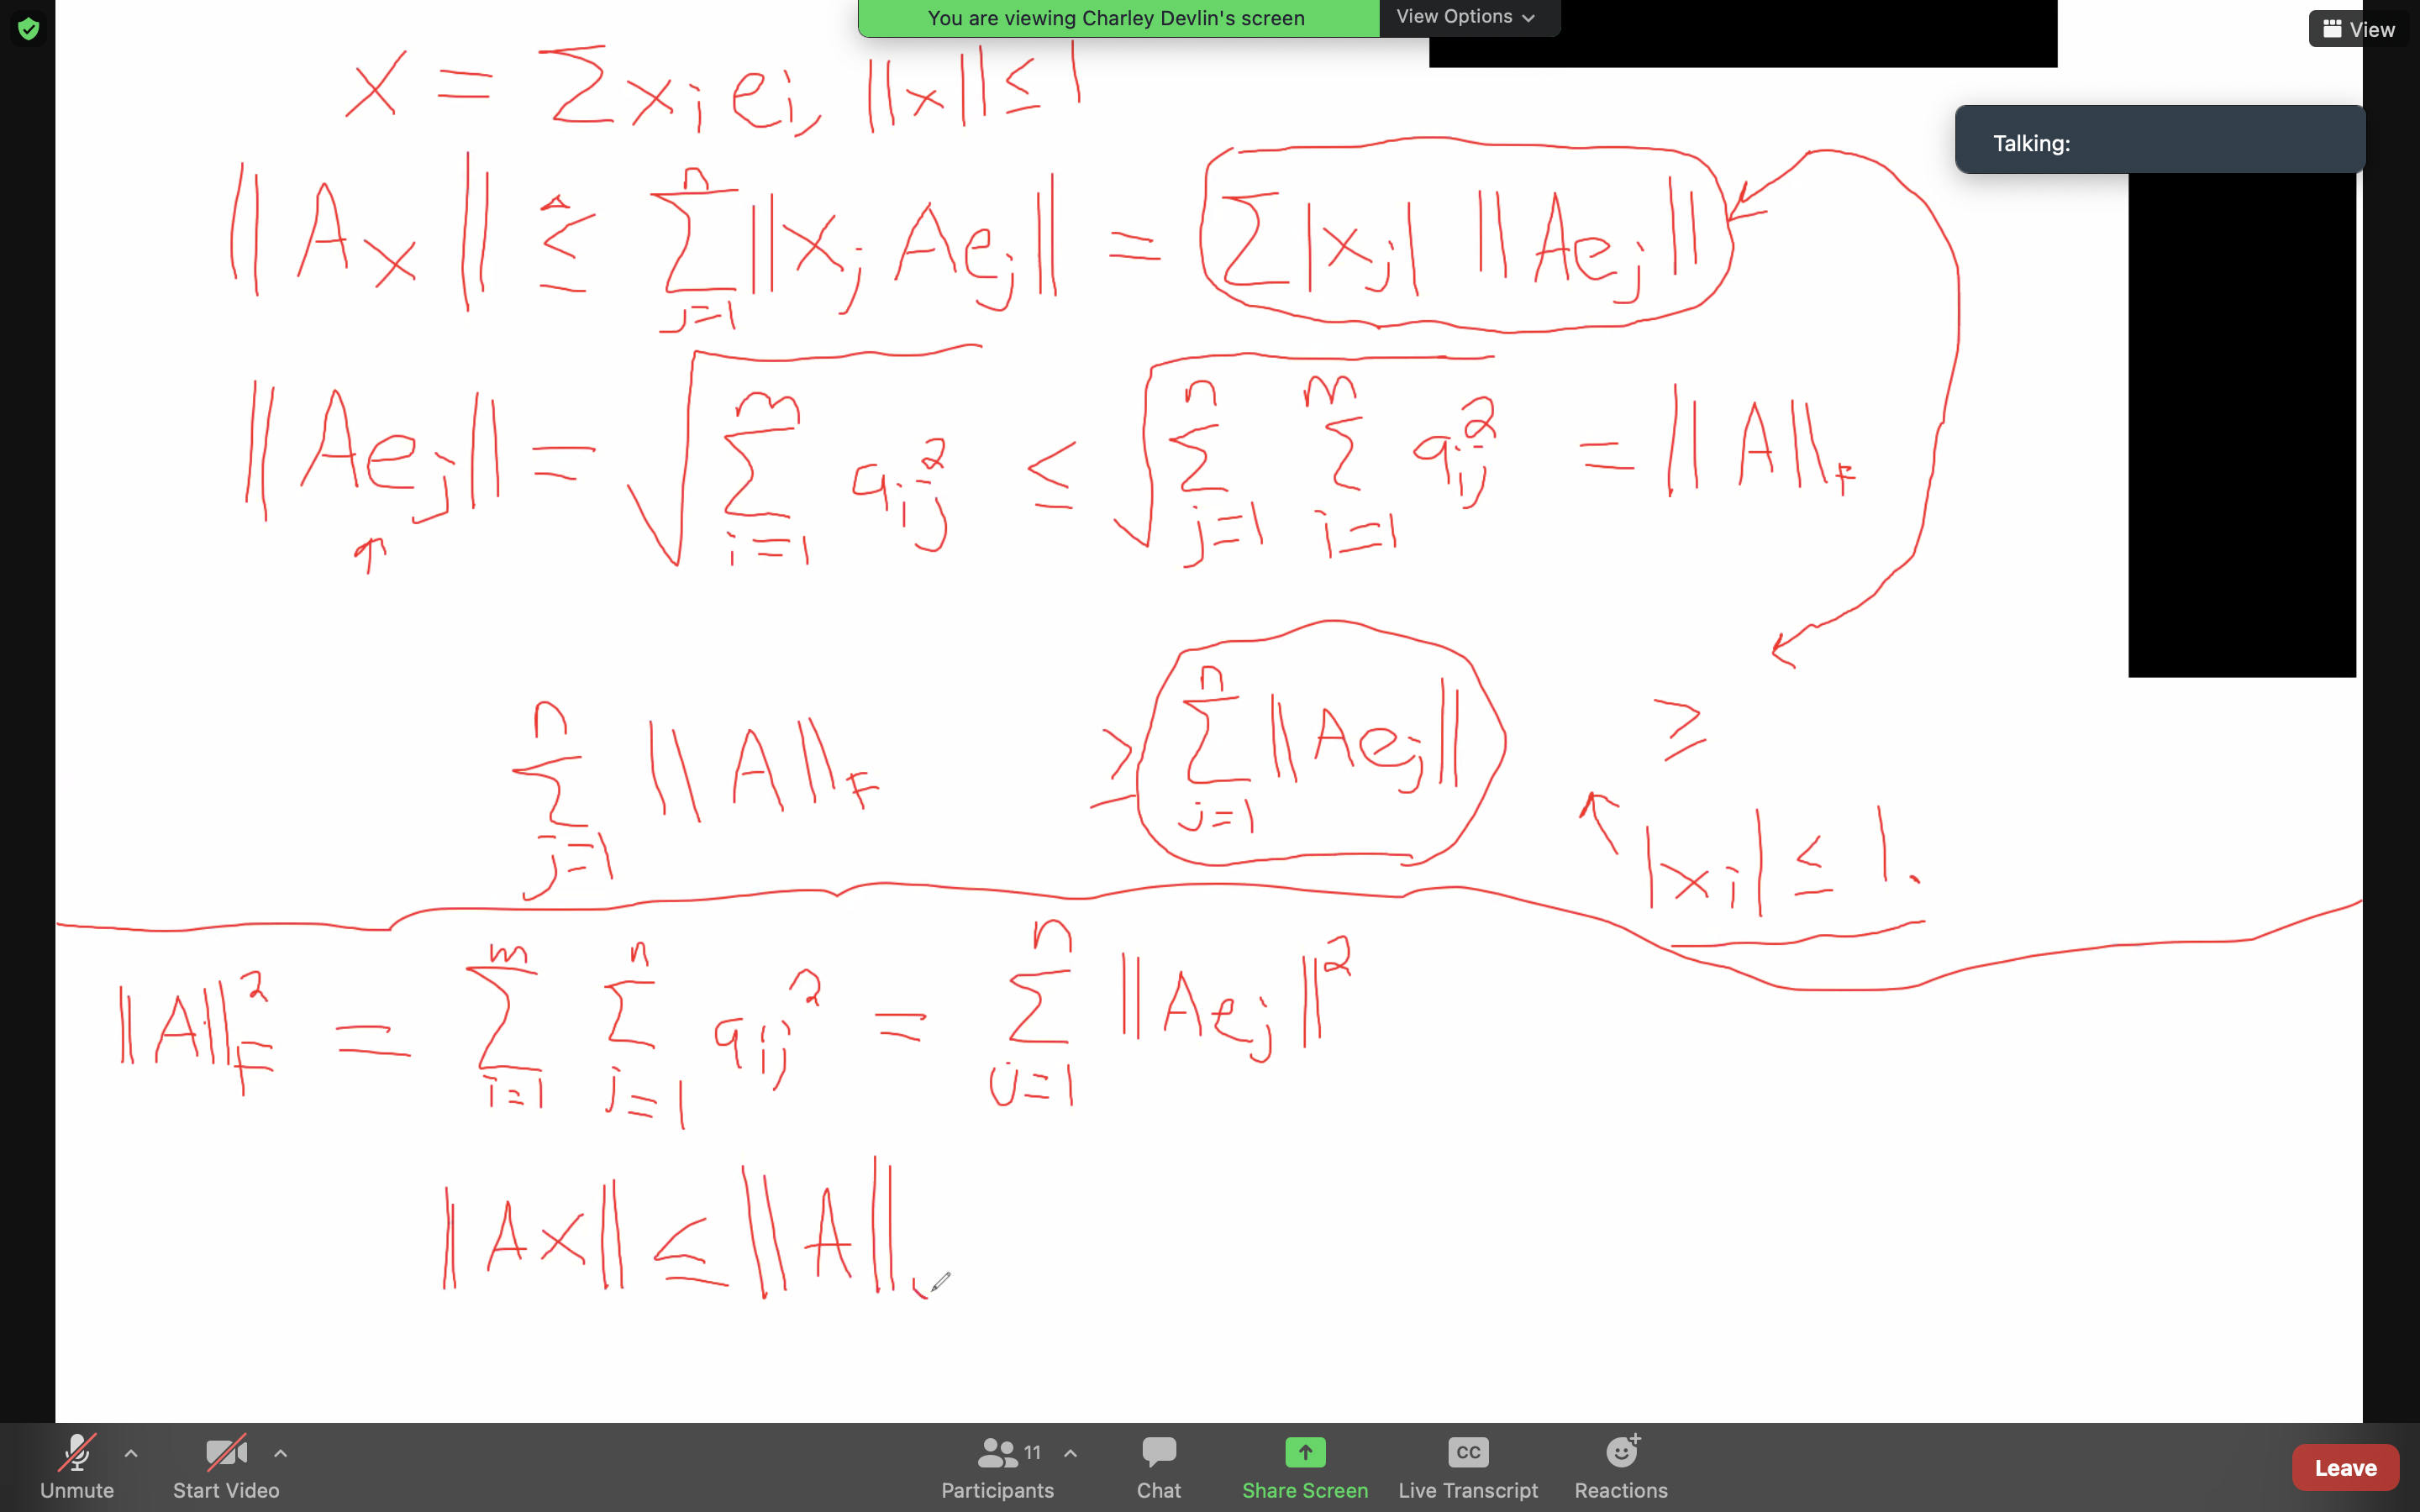 You are viewing Charley Devlin's screen View Options
View
Talking:
x = Σ xᵢ eᵢ, ‖x‖ ≤ 1
‖Ax‖ ≤ Σ_{j=1}^{n} ‖xⱼ Aeⱼ‖ = Σ |xⱼ| ‖Aeⱼ‖
‖Aeⱼ‖ = √(Σ_{i=1}^{m} aᵢⱼ²) ≤ √(Σ_{j=1}^{n} Σ_{i=1}^{m} aᵢⱼ²) = ‖A‖_F
Σ_{j=1}^{n} ‖A‖_F ≥ Σ_{j=1}^{n} ‖Aeⱼ‖ ≥
|xᵢ| ≤ 1.
‖A‖_F² = Σ_{i=1}^{m} Σ_{j=1}^{n} aᵢⱼ² = Σ_{j=1}^{n} ‖Aeⱼ‖²
‖Ax‖ ≤ ‖A‖
Unmute Start Video Participants 11 Chat Share Screen CC Live Transcript Reactions Leave